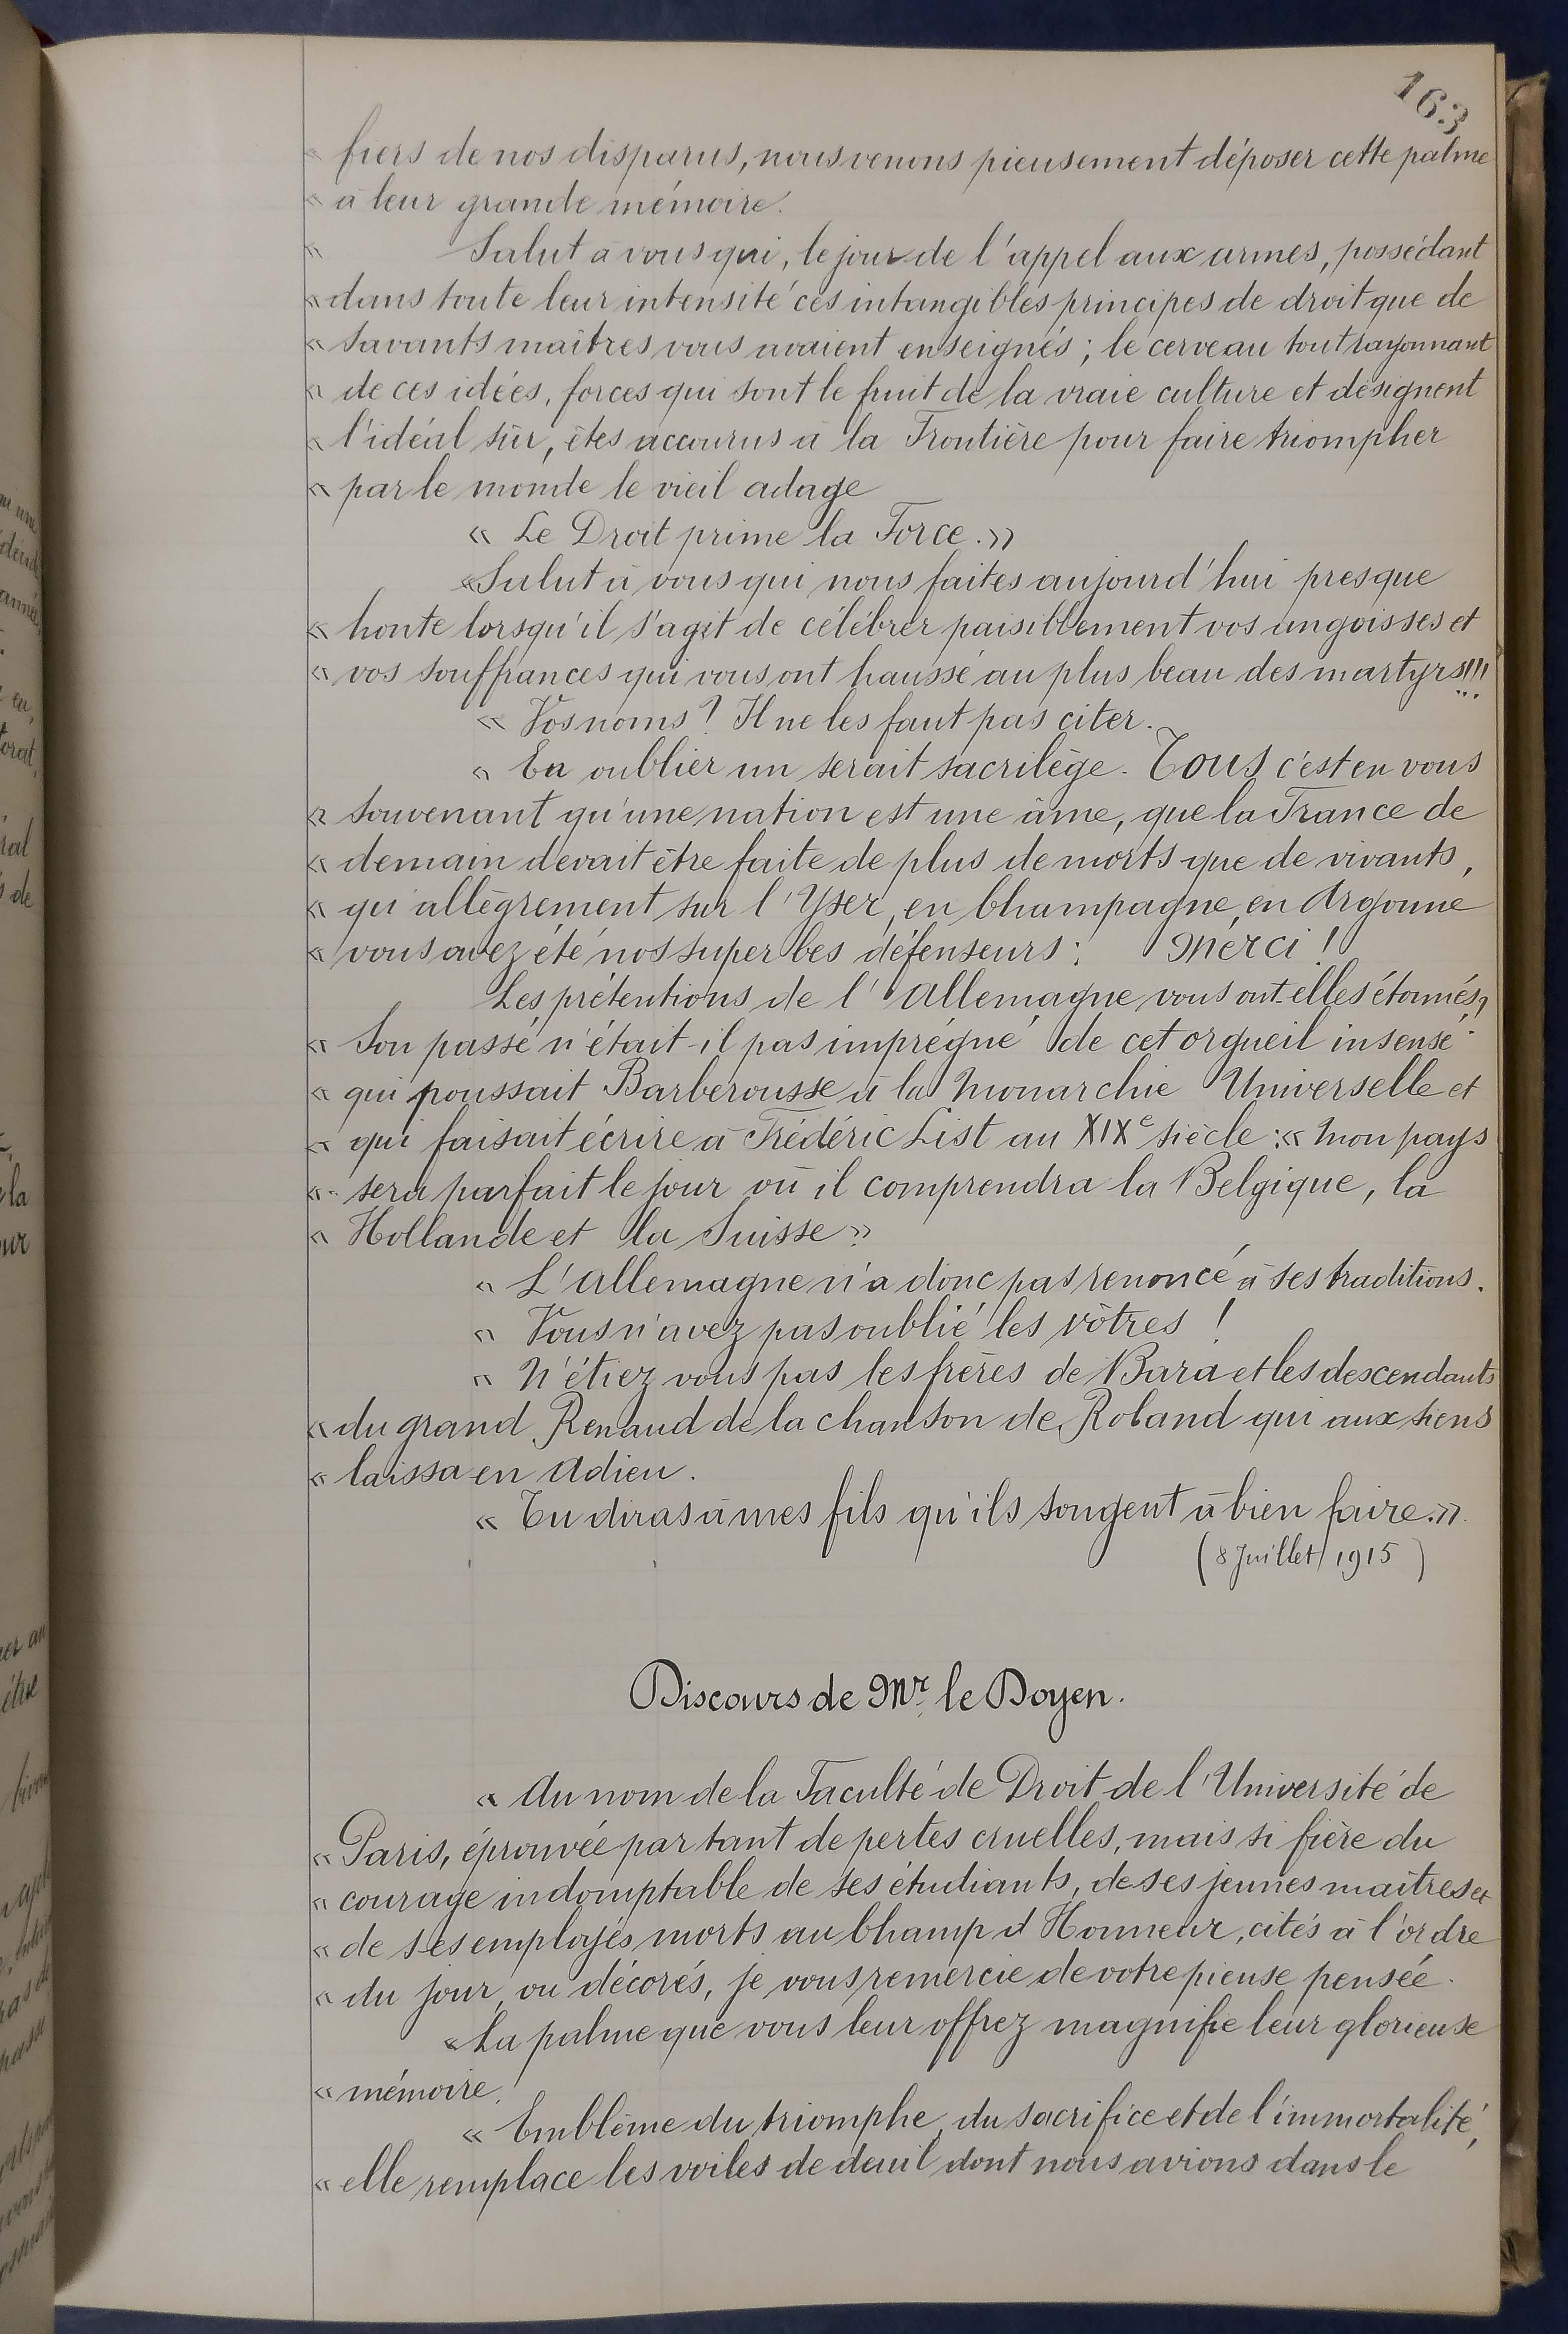 163
« fiers de nos disparus, nous venons pieusement déposer cette palme
« à leur grande mémoire.
« Salut à vous qui, le jour de l'appel aux armes, possédant
« dans toute leur intensité ces intangibles principes de droit que de
« savants maîtres vous avaient enseignés ; le cerveau tout rayonnant
« de ces idées, forces qui sont le fruit de la vraie culture et désignent
« l'idéal sûr, êtes accourus à la Frontière pour faire triompher
« par le monde le vieil adage
« Le Droit prime la Force. »
« Salut à vous qui nous faites aujourd'hui presque
« honte lorsqu'il s'agit de célébrer paisiblement vos angoisses et
« vos souffrances qui vous ont haussé au plus beau des martyrs!!!
« Vos noms ? Il ne les faut pas citer.
« En oublier un serait sacrilège. Tous c'est en vous
« souvenant qu'une nation est une âme, que la France de
« demain devait être faite de plus de morts que de vivants,
« qu'allègrement sur l'Yser, en Champagne, en Argonne
« vous avez été nos superbes défenseurs : Merci !
Les prétentions de l'Allemagne vous ont-elles étonnés ?
« Son passé n'était-il pas imprégné de cet orgueil insensé
« qui poussait Barberousse à la Monarchie Universelle et
« qui faisait écrire à Frédéric List au XIXe siècle : « Mon pays
« sera parfait le jour où il comprendra la Belgique, la
« Hollande et la Suisse »
« L'Allemagne n'a donc pas renoncé à ses traditions.
« Vous n'avez pas oublié les vôtres !
« N'étiez vous pas les frères de Bara et les descendants
« du grand Renaud de la chanson de Roland qui aux siens
« laissa en Adieu.
« Tu diras à mes fils qu'ils songent à bien faire. »
(8 Juillet 1915)
Discours de Mr. le Doyen.
« Au nom de la Faculté de Droit de l'Université de
« Paris, éprouvée par tant de pertes cruelles, mais si fière du
« courage indomptable de ses étudiants, de ses jeunes maîtres et
« de ses employés morts au Champ d'Honneur, cités à l'ordre
« du jour, ou décorés, je vous remercie de votre pieuse pensée.
« La palme que vous leur offrez magnifie leur glorieuse
« mémoire.
« Emblème du triomphe, du sacrifice et de l'immortalité,
« elle remplace les voiles de deuil dont nous avions dans le